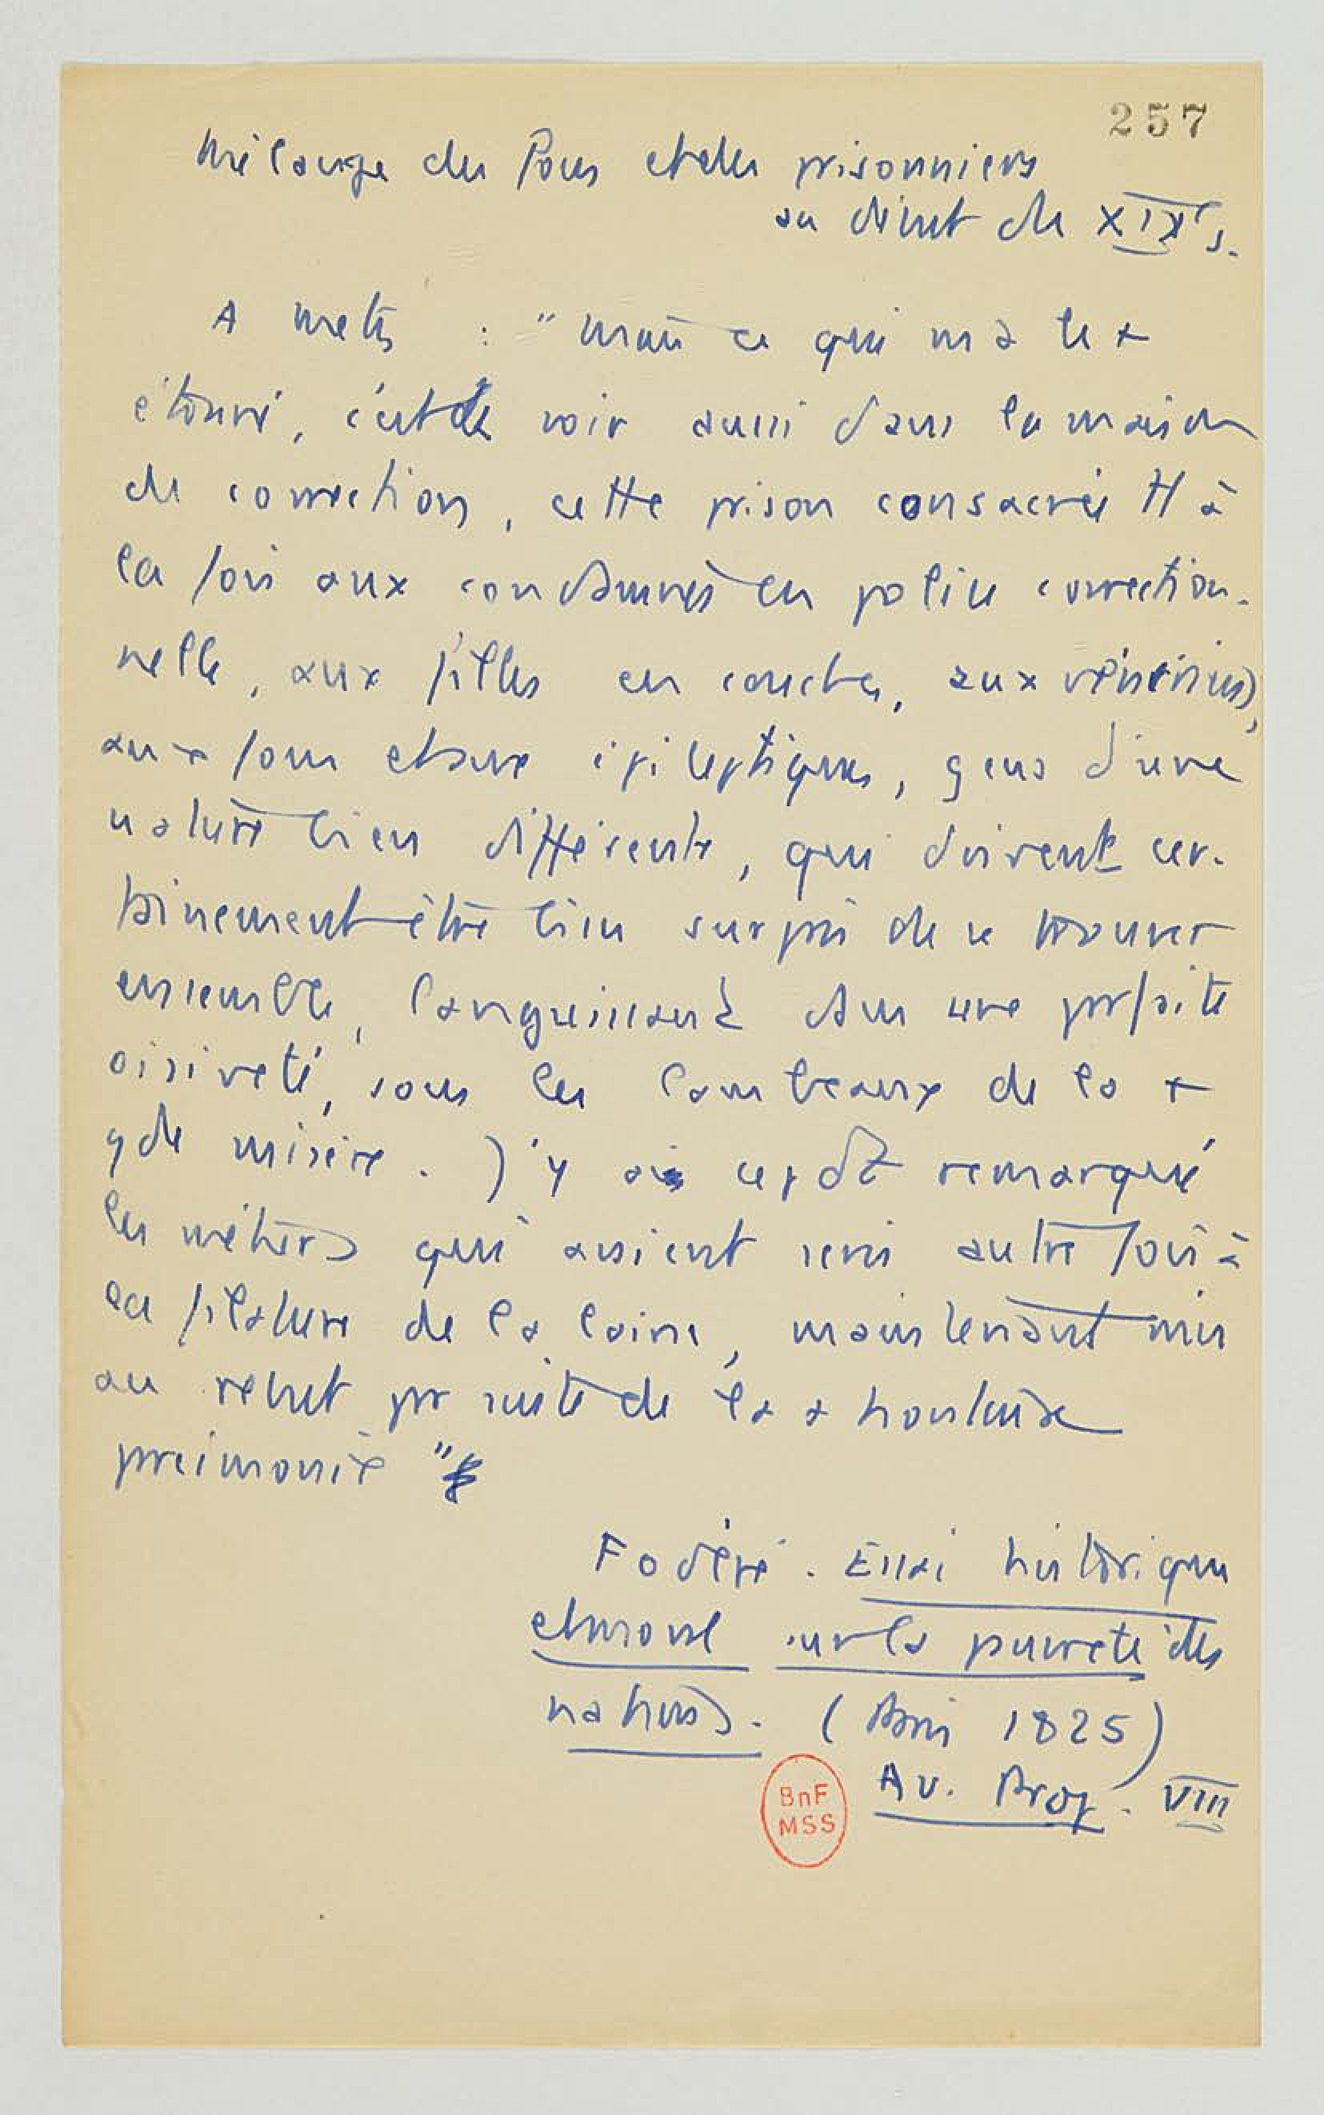 257
Mélange des fous et des prisonniers
au début du XIXe s.
A Metz : " Mais ce qui m'a le +
étonné, c'est de voir aussi dans la maison
de correction, cette prison consacrée tt à
la fois aux condamnés en police correction-
nelle, aux filles en couches, aux vénériens,
aux fous et aux épileptiques, gens d'une
nature bien différente, qui doivent cer-
tainement être bien surpris de se trouver
ensemble, languissant dans une parfaite
oisiveté, sous les lambeaux de la +
gde misère. J'y ai cepdt remarqué
les métiers qui avaient servi autrefois à
la filature de la laine, maintenant mis
au rebut par suite de la + honteuse
"
Fodéré. Essai historique
et moral sur la pauvreté des
nations. (Paris 1825)
Av. Prop. VIII
BnF
MSS